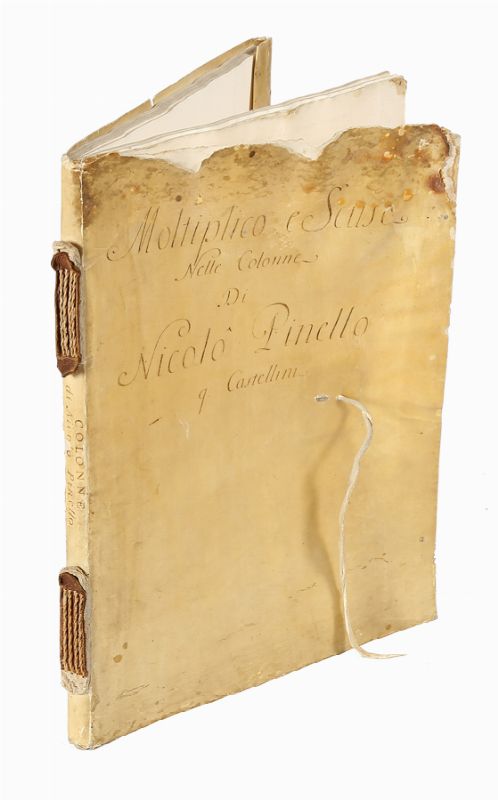 Moltiplico e Scuse
Nelle Colonne
Di
Nicolò Pinello
q Castellini
COLONNE
di Nic.º q Pinello